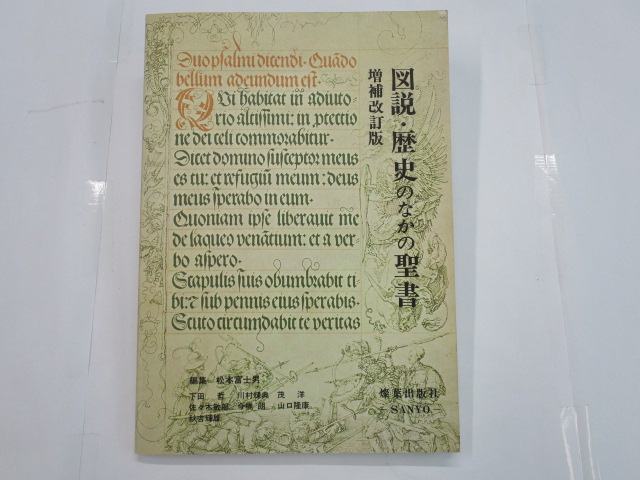 Duo psalmi dicendi. Quādo
bellum adeundum est.
Qvi habitat in adiuto-
rio altissimi: in ptectio
ne dei celi commorabitur.
Dicet domino susceptor meus
es tu: et refugiū meum: deus
meus sperabo in eum.
Quoniam ipse liberauit me
de laqueo venātium: et a ver-
bo aspero.
Scapulis suis obumbrabit ti-
bi: ⁊ sub pennis eius sperabis.
Scuto circumdabit te veritas
図説・歴史のなかの聖書
増補改訂版
編集 松本富士男
下田 哲 川村輝典 茂 洋
佐々木敏郎 守屋 朗 山口隆康
秋吉輝雄
燦葉出版社
SANYO